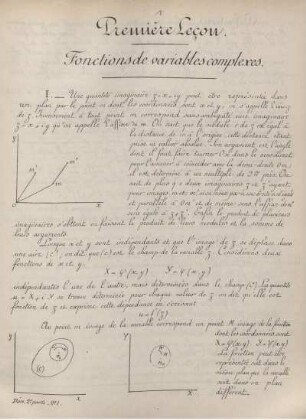 Première Leçon.
Fonctions de variables complexes.
I.— Une quantité imaginaire z = x + iy peut être représentée dans
un plan par le point m dont les coordonnées sont x et y, m s'appelle l'image
de z. Inversement à tout point m correspond sans ambiguité une imaginaire
z = x + iy qu'on appelle l'affixe de m. On sait que le module ρ de z est égal à
la distance de m à l'origine, cette distance étant
prise en valeur absolue. Son argument est l'angle
dont il faut faire tourner Ox dans le sens direct
pour l'amener à coïncider avec la demi-droite Om;
il est déterminé à un multiple de 2π près.
de plus z et z' deux imaginaires
m'
m
x
y
imaginaires s'obtient en faisant le produit de leurs modules et la somme de
leurs arguments
Lorsque x et y sont indépendants et que l'image de z se déplace dans
une aire (C), on dit que (C) est le champ de la variable z. Considérons deux
fonctions de x et y.
X = φ(x, y) Y = ψ(x, y)
indépendantes l'une de l'autre, mais déterminées dans le champ (C). La quantité
u = X + iY se trouve déterminée pour chaque valeur de z; on dit qu'elle est
fonction de z et on exprime cette dépendance en écrivant
u = f(z)
Au point m image de la variable correspond un point M image de la fonction
dont les coordonnées sont
X = φ(x, y) Y = ψ(x, y)
La fonction peut être
représentée soit dans le
même plan que la variable
soit dans un plan
différent.